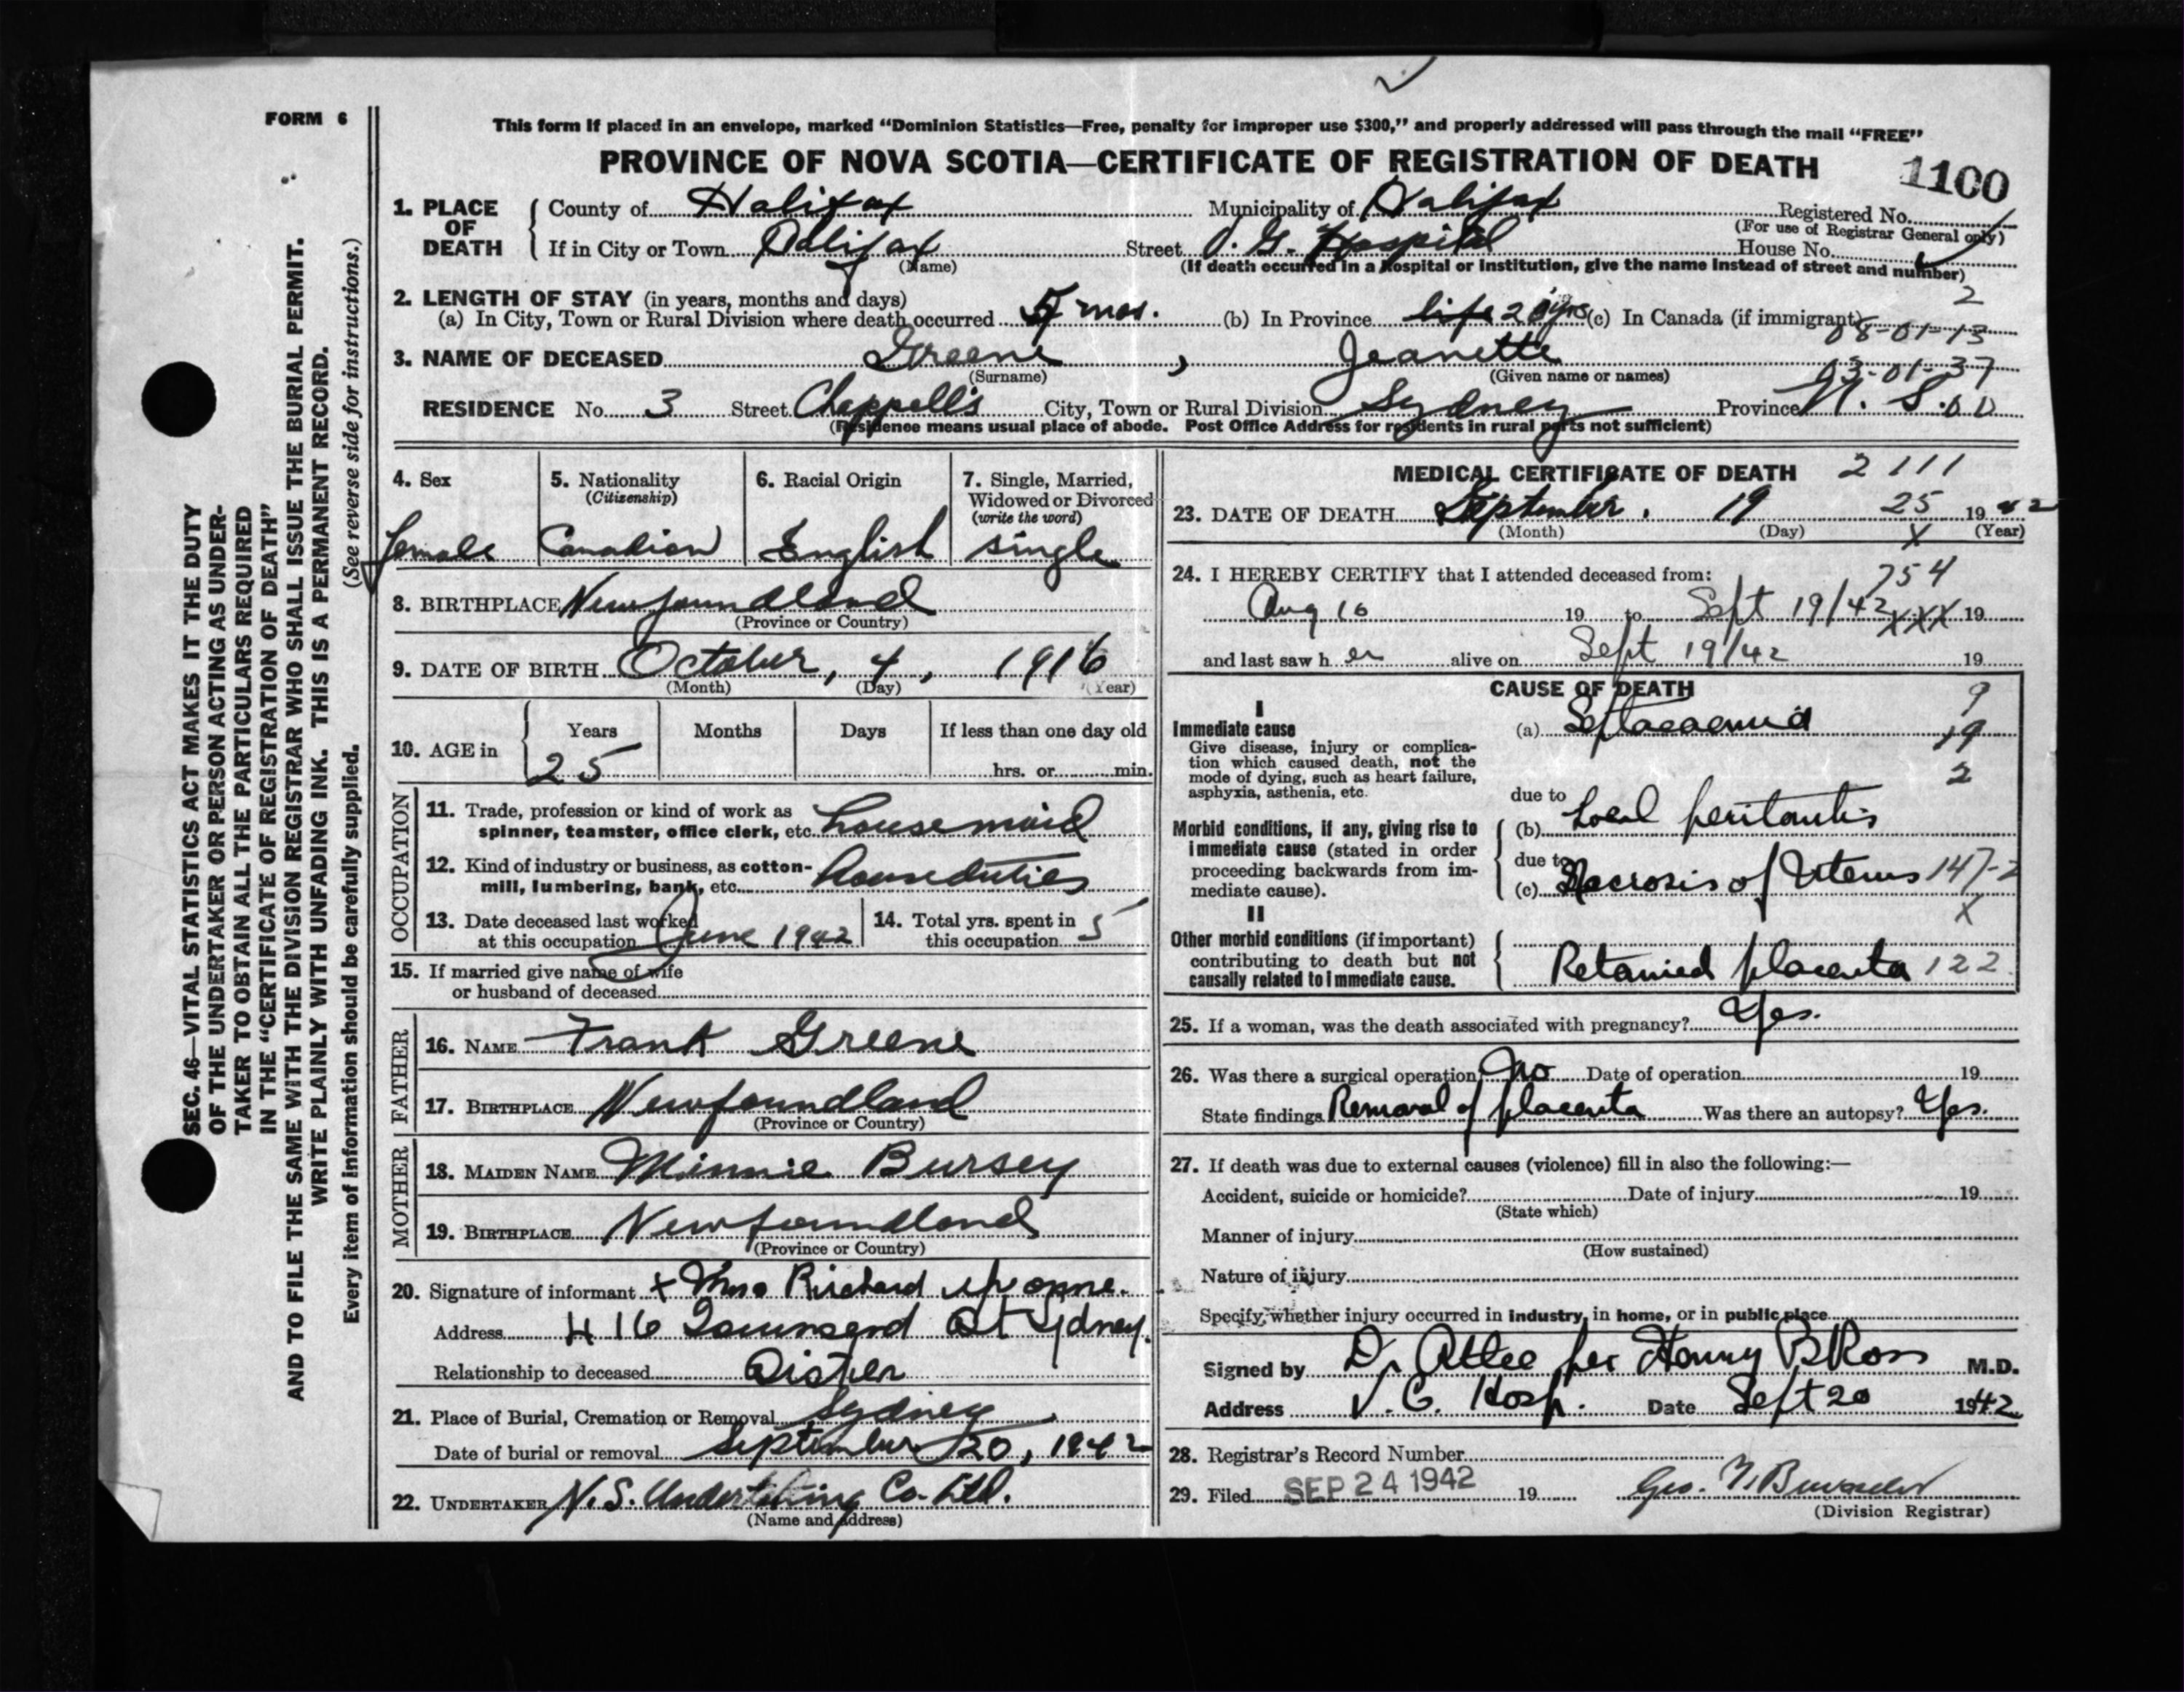 FORM 6
This form if placed in an envelope, marked “Dominion Statistics—Free, penalty for improper use $300,” and properly addressed will pass through the mail “FREE”
PROVINCE OF NOVA SCOTIA—CERTIFICATE OF REGISTRATION OF DEATH
1100
1. PLACE OF DEATH { County of Halifax Municipality of Halifax Registered No.
(For use of Registrar General only)
If in City or Town Halifax Street V. G. Hospital House No.
(Name) (If death occurred in a Hospital or Institution, give the name instead of street and number)
2. LENGTH OF STAY (in years, months and days) 2
(a) In City, Town or Rural Division where death occurred mos. (b) In Province life 20 yrs (c) In Canada (if immigrant)
08-01-13
3. NAME OF DECEASED Greene, Jeanette
(Surname) (Given name or names) 03-01-37
RESIDENCE No. 3 Street Chappell's City, Town or Rural Division Sydney Province N. S. 00
(Residence means usual place of abode. Post Office Address for residents in rural parts not sufficient)
4. Sex female
5. Nationality (Citizenship) Canadian
6. Racial Origin English
7. Single, Married, Widowed or Divorced (write the word) single
8. BIRTHPLACE Newfoundland
(Province or Country)
9. DATE OF BIRTH October, 4, 1916
(Month) (Day) (Year)
10. AGE in { Years Months Days If less than one day old
25 hrs. or min.
OCCUPATION
11. Trade, profession or kind of work as
spinner, teamster, office clerk, etc. housemaid
12. Kind of industry or business, as cotton-
mill, lumbering, bank, etc. houseduties
13. Date deceased last worked
at this occupation June 1942
14. Total yrs. spent in
this occupation 5
15. If married give name of wife
or husband of deceased
FATHER
16. NAME Frank Greene
17. BIRTHPLACE Newfoundland
(Province or Country)
MOTHER
18. MAIDEN NAME Minnie Bursey
19. BIRTHPLACE Newfoundland
(Province or Country)
20. Signature of informant + Mrs Richard
Address 416 Townsend St Sydney.
Relationship to deceased Sister
21. Place of Burial, Cremation or Removal Sydney
Date of burial or removal September 20, 1942
22. UNDERTAKER N.S. Undertaking Co. Ltd.
(Name and address)
MEDICAL CERTIFICATE OF DEATH 2111
23. DATE OF DEATH September. 19 25 1942
(Month) (Day) X (Year)
24. I HEREBY CERTIFY that I attended deceased from: 754
Aug 10 19 to Sept 19/42 XXX 19
and last saw her alive on Sept 19/42 19
CAUSE OF DEATH 9
I
Immediate cause (a) Septacaemia 19
Give disease, injury or complica-
tion which caused death, not the
mode of dying, such as heart failure,
asphyxia, asthenia, etc.
2
due to
Morbid conditions, if any, giving rise to
immediate cause (stated in order
proceeding backwards from im-
mediate cause).
(b) Local peritonitis
due to
(c) Necrosis of Uterus 147-2
X
II
Other morbid conditions (if important)
contributing to death but not
causally related to immediate cause.
Retained placenta 122
25. If a woman, was the death associated with pregnancy? Yes.
26. Was there a surgical operation No Date of operation 19
State findings Removal of placenta Was there an autopsy? Yes.
27. If death was due to external causes (violence) fill in also the following:—
Accident, suicide or homicide? Date of injury 19
(State which)
Manner of injury
(How sustained)
Nature of injury
Specify whether injury occurred in industry, in home, or in public place
Signed by Dr Atlee per Henry B Ross M.D.
Address V. G. Hosp. Date Sept 20 1942
28. Registrar's Record Number
29. Filed SEP 24 1942 19 Geo.
(Division Registrar)
SEC. 46—VITAL STATISTICS ACT MAKES IT THE DUTY
OF THE UNDERTAKER OR PERSON ACTING AS UNDER-
TAKER TO OBTAIN ALL THE PARTICULARS REQUIRED
IN THE “CERTIFICATE OF REGISTRATION OF DEATH”
AND TO FILE THE SAME WITH THE DIVISION REGISTRAR WHO SHALL ISSUE THE BURIAL PERMIT.
WRITE PLAINLY WITH UNFADING INK. THIS IS A PERMANENT RECORD.
Every item of information should be carefully supplied. (See reverse side for instructions.)